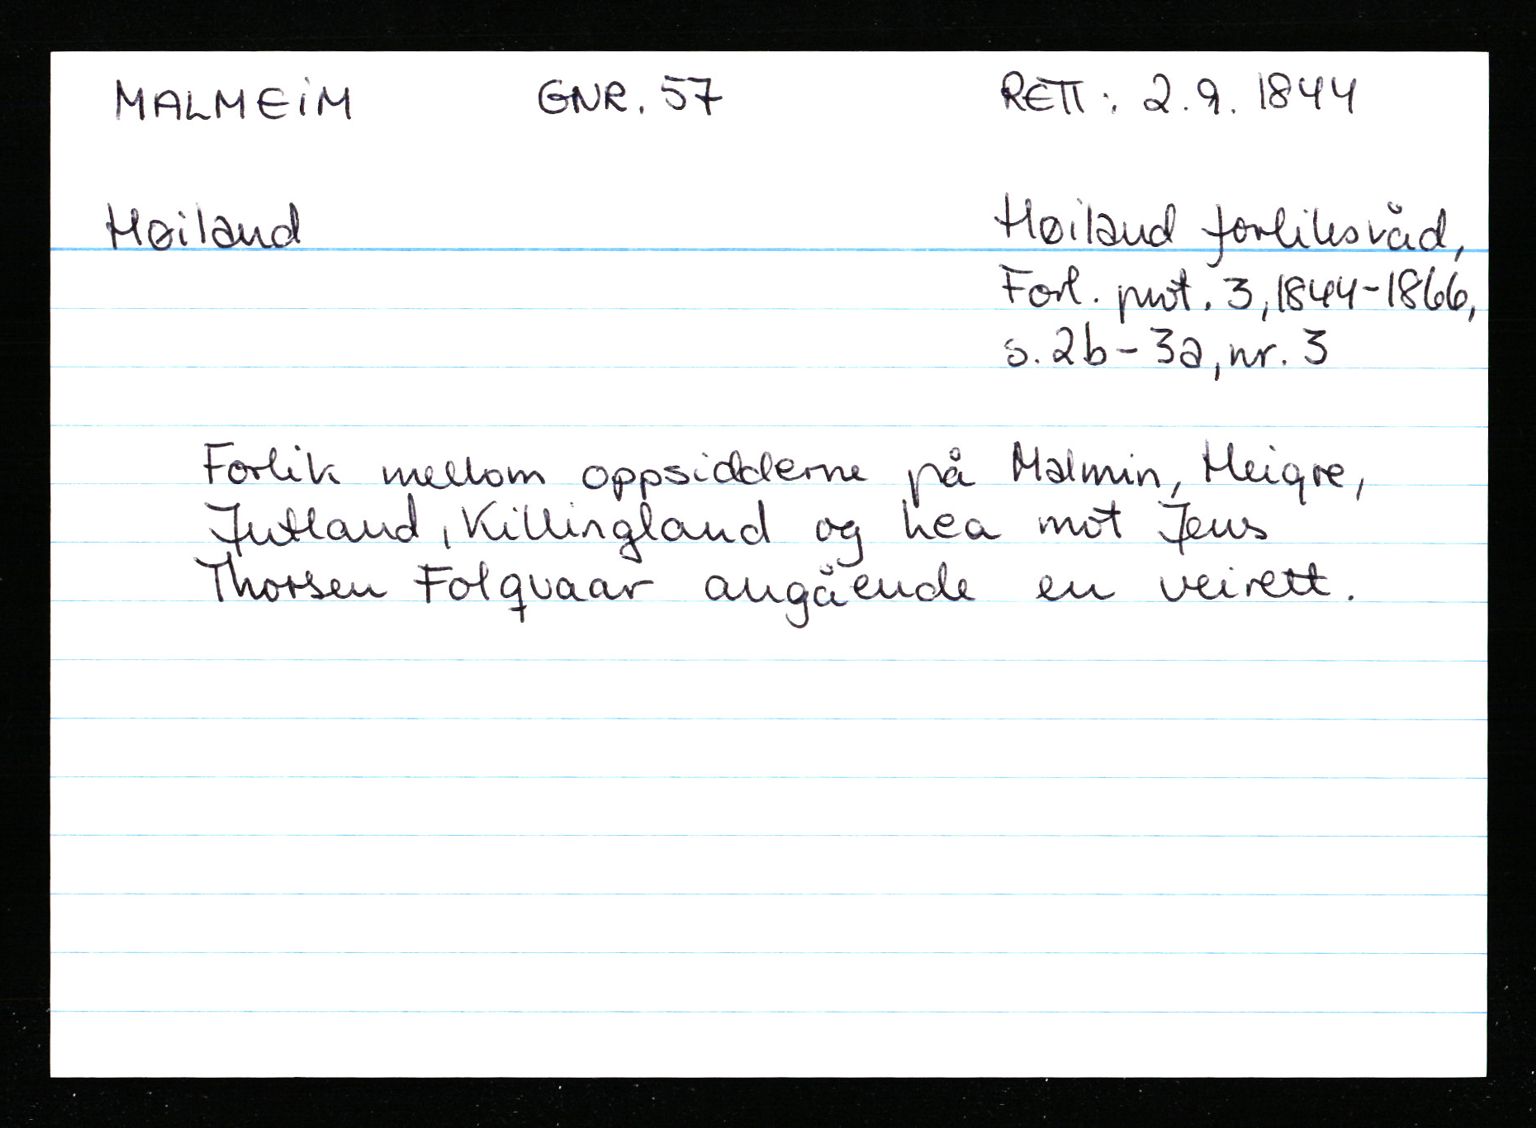 MALMEIM GNR. 57 RETT: 2.9. 1844
Høiland Høiland forliksråd,
Forl. prot. 3, 1844-1866,
s. 2b-3a, nr. 3
Forlik mellom oppsidderne på Malmin, Heigre,
Jutland, Killingland og Lea mot Jens
Thorsen Folqvaar angående en veirett.